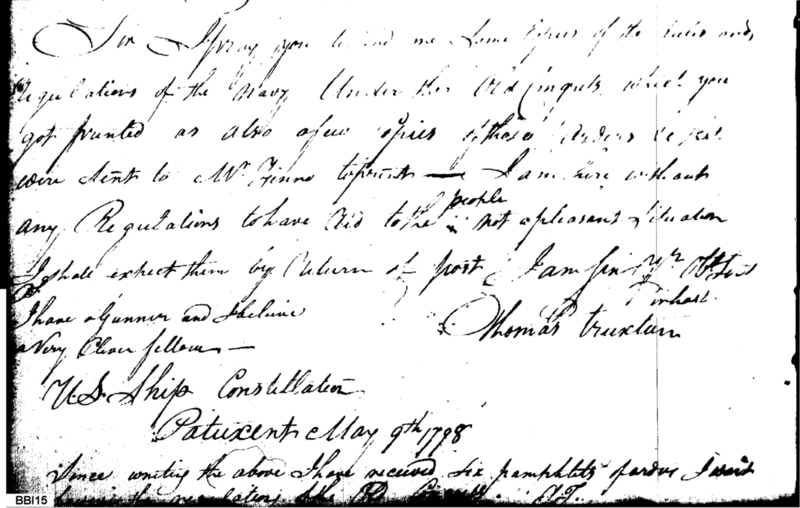 Sir I pray you to send me Some Copies of the rules and
regulations of the Navy Under the Old Congress which you
got printed as also a few Copies of those Orders
were Sent to Mr to print — I am here without
any Regulations to have read to the people not a pleasant Situation
I shall expect them by Return of post I am Sir Yr Obt Servt
in hast.
I have a Gunner and I believe
a Very Clever fellow —
Thomas Truxtun
U.S. Ship Constellation
Patuxent May 9th 1798
Since writing the above I have received Six pamphlets
the regulations
BBI15